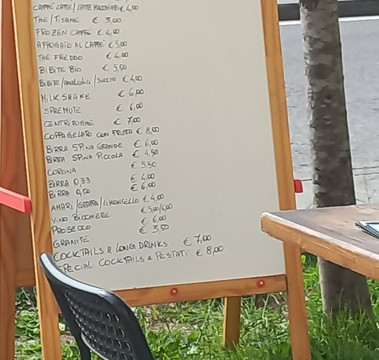 CAFFÈ LATTE / LATTE MACCHIATO € 4,00
THE / TISANE € 3,00
FROZEN CAFFÈ € 4,00
AFFOGATO AL CAFFÈ € 5,00
THE FREDDO € 4,00
BIBITE BIO € 5,50
BIBITE / / SUCCHI € 4,00
MILK SHAKE € 6,00
SPREMUTE € 6,00
CENTRIFUGHE € 7,00
COPPA GELATO CON FRUTTA € 8,00
BIRRA SPINA GRANDE € 6,00
BIRRA SPINA PICCOLA € 4,50
CORONA € 5,50
BIRRA 0,33 € 4,00
BIRRA 0,50 € 6,00
AMARI / GRAPPA / LIMONCELLO € 4,00
VINO BICCHIERE € 5,00/4,00
PROSECCO € 6,00
GRANITE € 3,50
COCKTAILS & LONG DRINKS € 7,00
SPECIAL COCKTAILS & PESTATI € 8,00